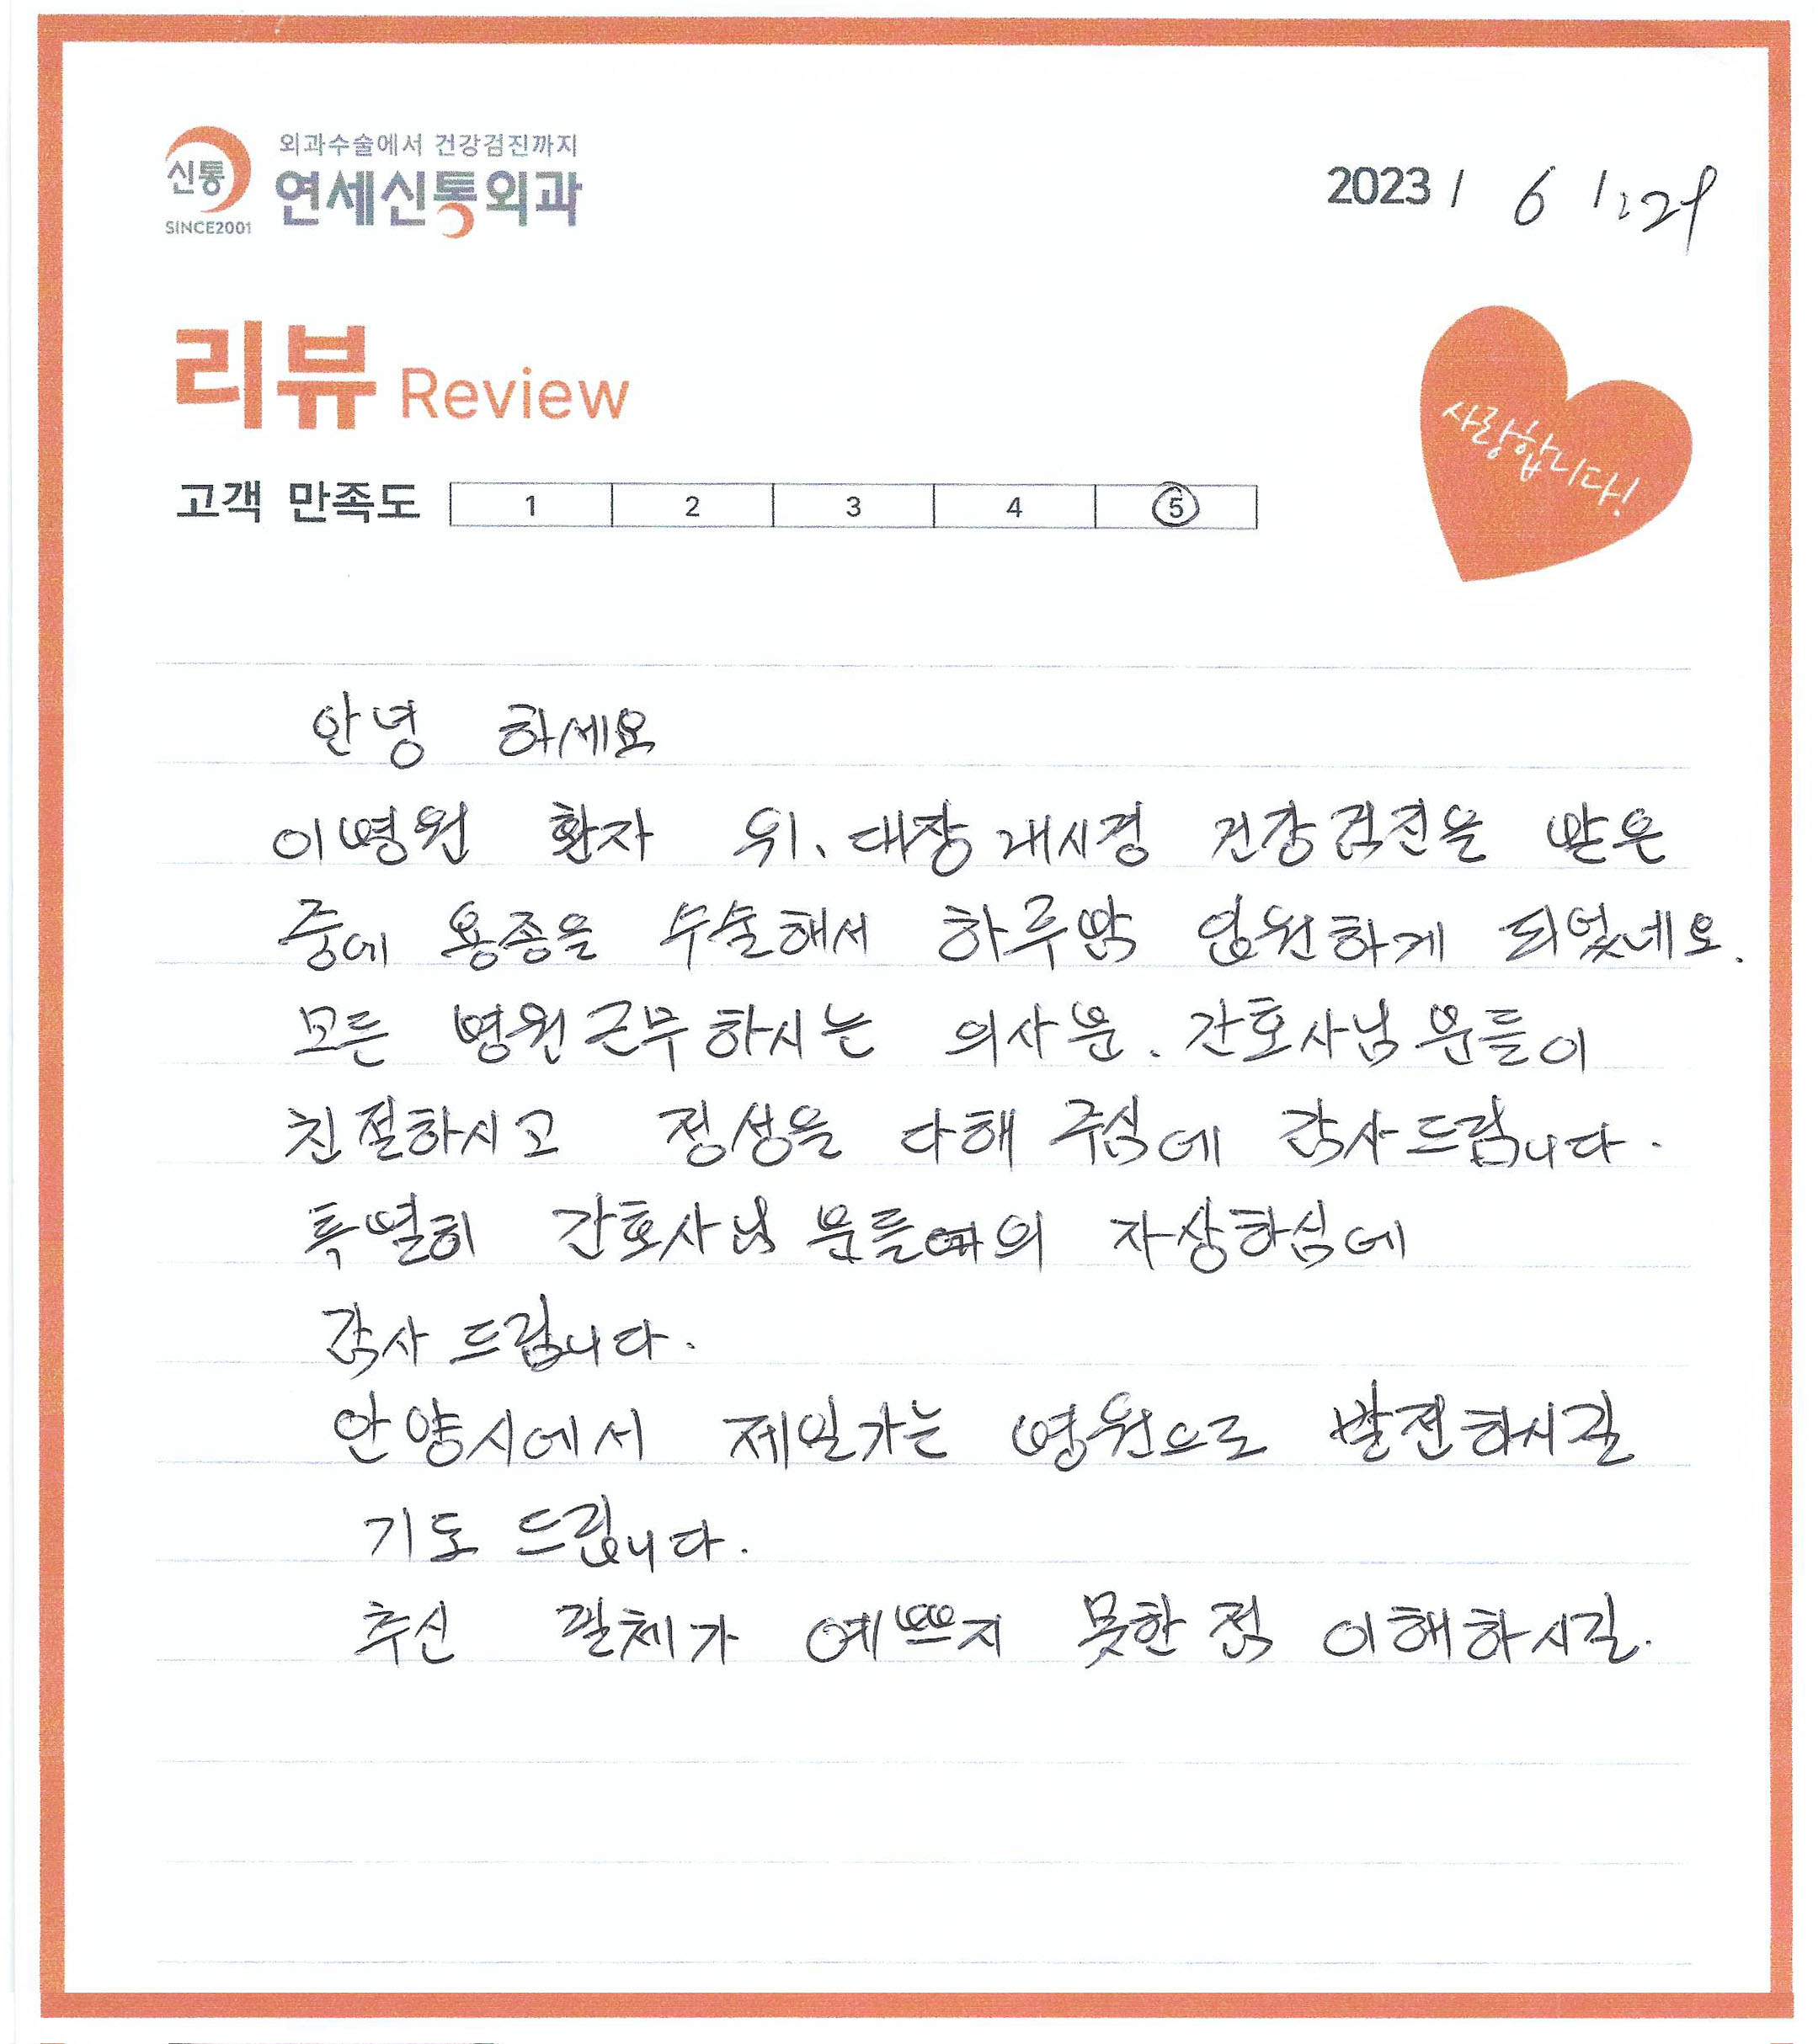 신통
SINCE2001
외과수술에서 건강검진까지
연세신통외과
2023 / 6 / 29
리뷰 Review
사랑합니다!
고객 만족도 1 2 3 4 5
안녕 하세요
이병원 환자 위、대장내시경 건강검진을 받은
중에 용종을 수술해서 하루밤 입원하게 되었네요.
모든 병원근무하시는 의사분. 간호사님분들이
친절하시고 정성을 다해 주심에 감사드립니다.
특별히 간호사님 분들의 자상하심에
감사 드립니다.
안양시에서 제일가는 병원으로 발전하시길
기도 드립니다.
추신 필체가 예쁘지 못한점 이해하시길.